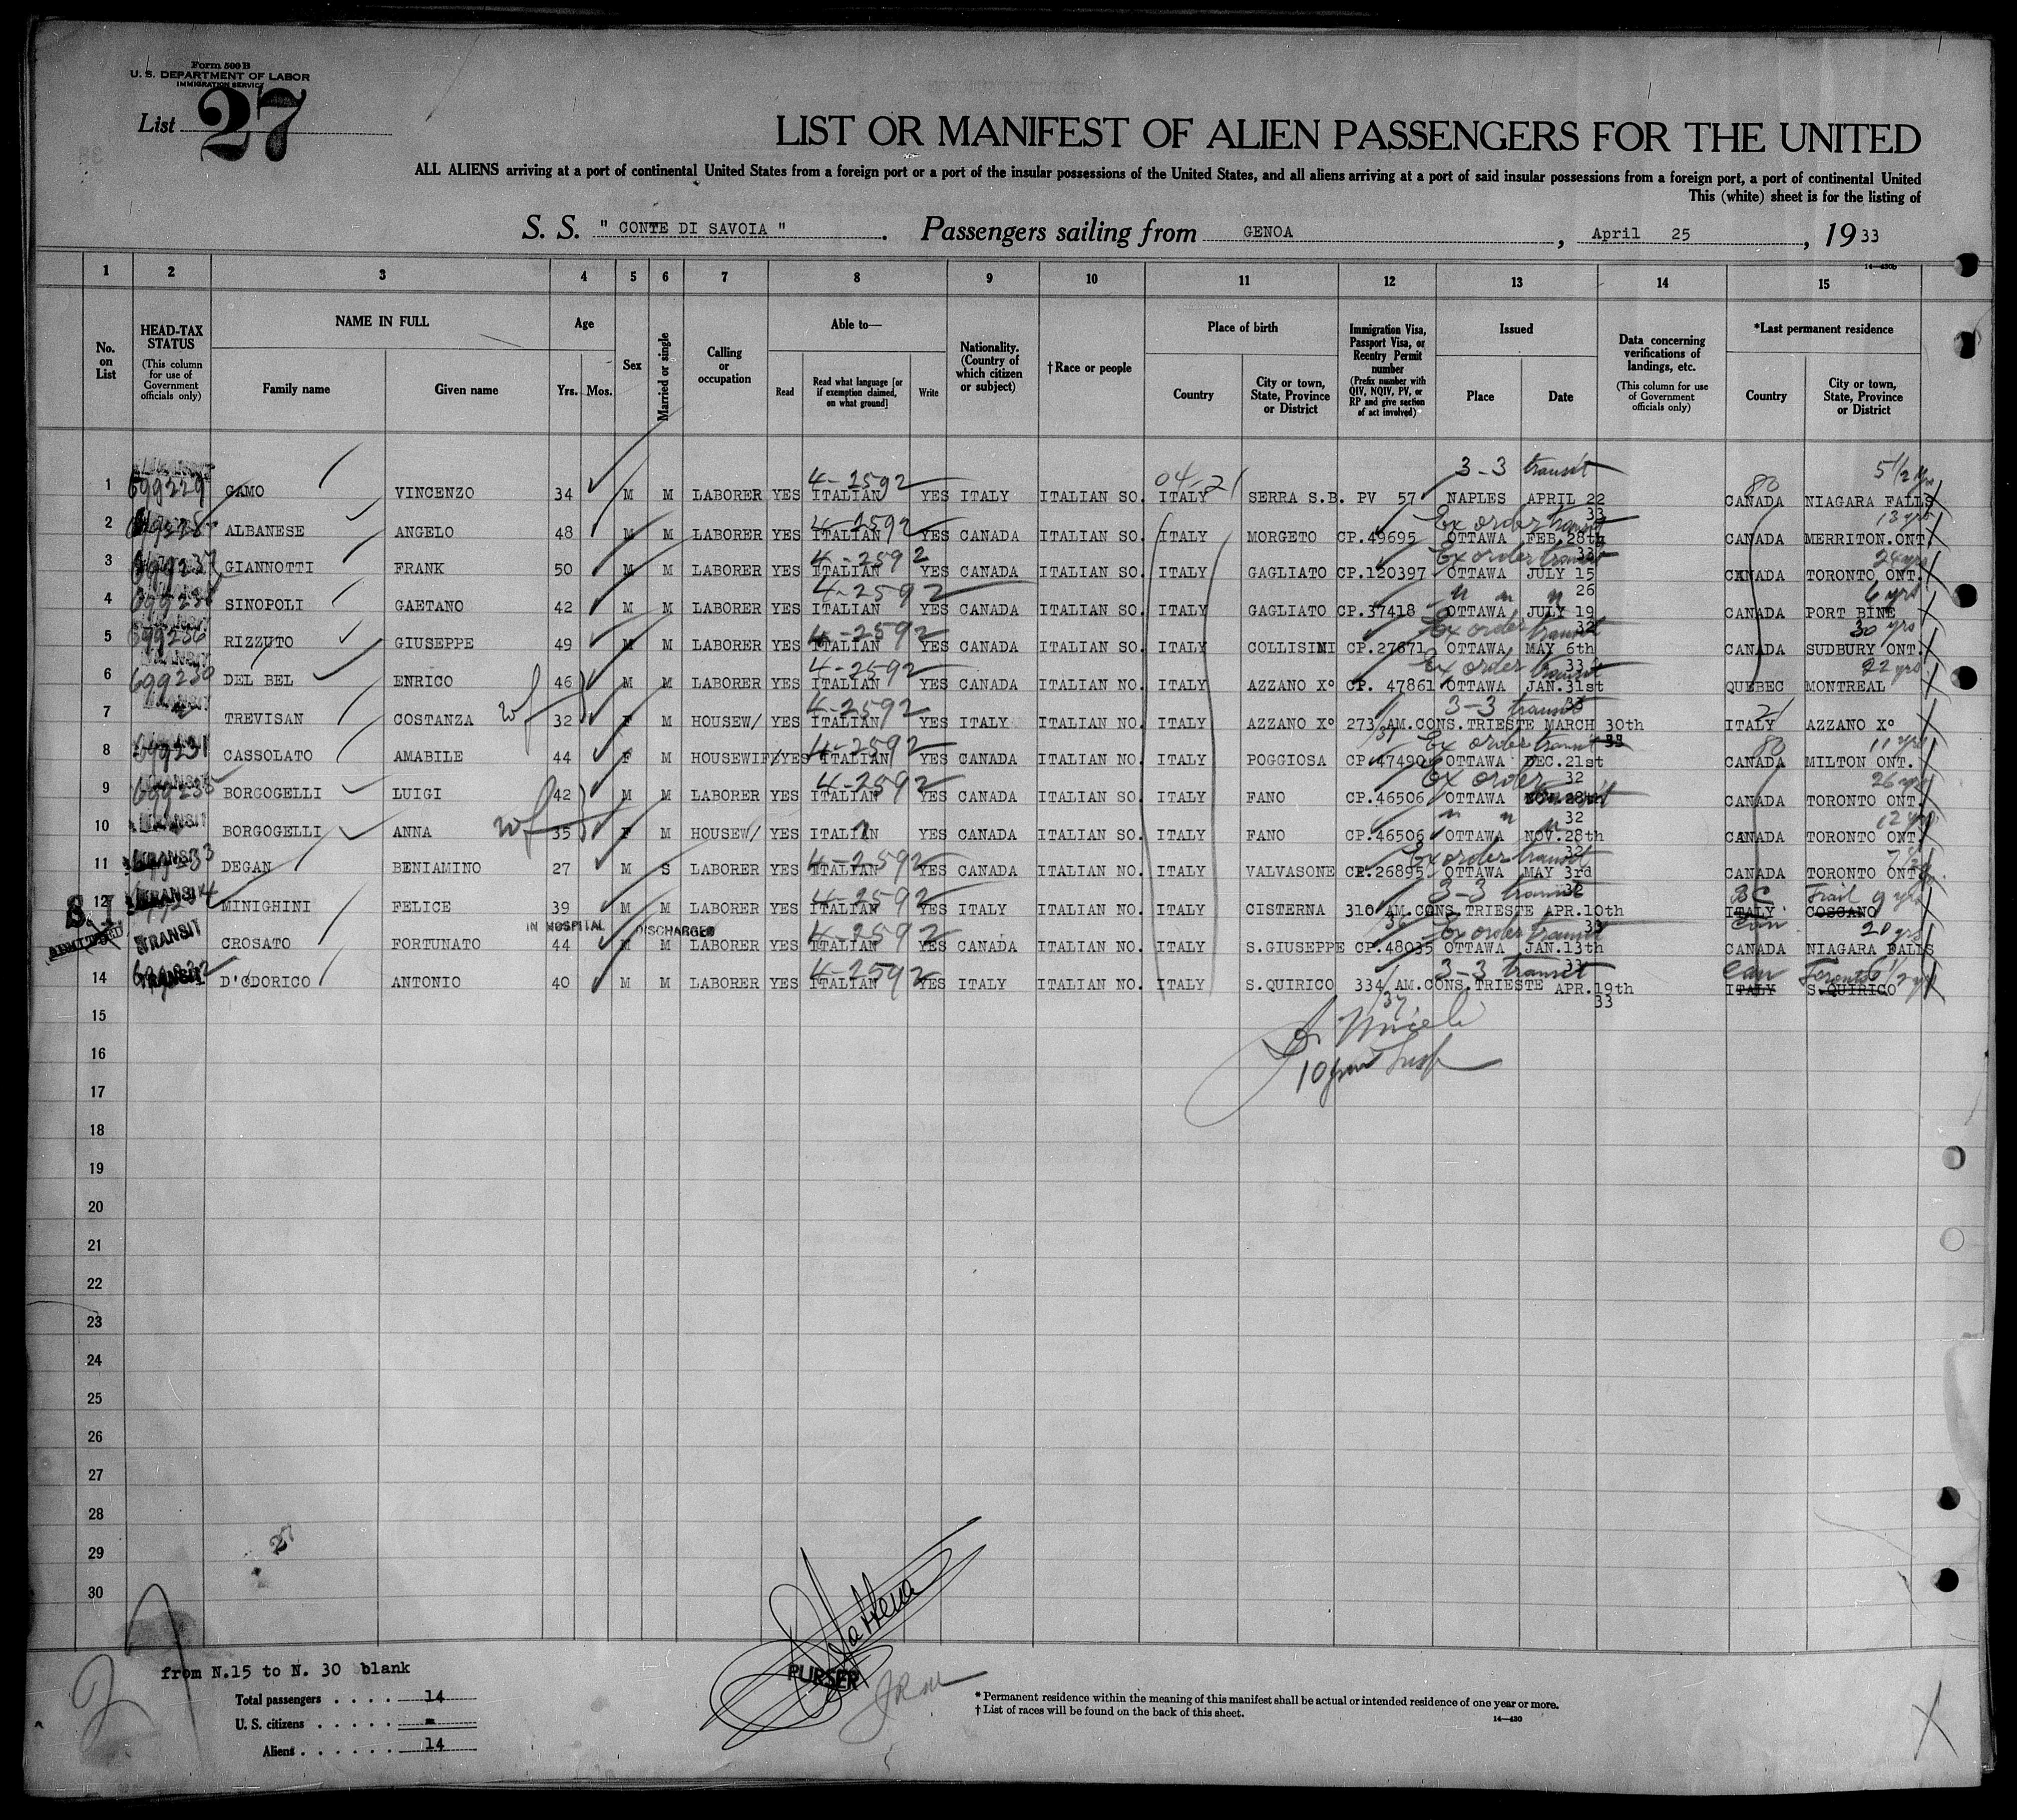 Form 500 B
U. S. DEPARTMENT OF LABOR
IMMIGRATION SERVICE
List 27
LIST OR MANIFEST OF ALIEN PASSENGERS FOR THE UNITED
ALL ALIENS arriving at a port of continental United States from a foreign port or a port of the insular possessions of the United States, and all aliens arriving at a port of said insular possessions from a foreign port, a port of continental United
This (white) sheet is for the listing of
S. S. " CONTE DI SAVOIA " . Passengers sailing from GENOA , April 25 , 19 33
14—430b
1 2 3 4 5 6 7 8 9 10 11 12 13 14 15
No. on List
HEAD-TAX STATUS (This column for use of Government officials only)
NAME IN FULL Family name Given name
Age Yrs. Mos.
Sex
Married or single
Calling or occupation
Able to— Read Read what language [or if exemption claimed, on what ground] Write
Nationality. (Country of which citizen or subject)
†Race or people
Place of birth Country City or town, State, Province or District
Immigration Visa, Passport Visa, or Reentry Permit number (Prefix number with QIV, NQIV, PV, or RP and give section of act involved)
Issued Place Date
Data concerning verifications of landings, etc. (This column for use of Government officials only)
*Last permanent residence Country City or town, State, Province or District
4-2592 04-21 3-3 transit 80 5 1/2 yrs
1 699229 GAMO VINCENZO 34 M M LABORER YES ITALIAN YES ITALY ITALIAN SO. ITALY SERRA S.B. PV 57 NAPLES APRIL 22 33 CANADA NIAGARA FALLS
4-2592 Ex order transit 13 yrs
2 ALBANESE ANGELO 48 M M LABORER YES ITALIAN YES CANADA ITALIAN SO. ITALY MORGETO CP.49695 OTTAWA FEB.28th 33 CANADA MERRITON.ONT.
4-2592 Ex order transit 24 yrs
3 699237 GIANNOTTI FRANK 50 M M LABORER YES ITALIAN YES CANADA ITALIAN SO. ITALY GAGLIATO CP.120397 OTTAWA JULY 15 26 CANADA TORONTO ONT.
4-2592 " " " 6 yrs
4 SINOPOLI GAETANO 42 M M LABORER YES ITALIAN YES CANADA ITALIAN SO. ITALY GAGLIATO CP.37418 OTTAWA JULY 19 32 CANADA PORT BINE
4-2592 Ex order transit 30 yrs
5 699236 RIZZUTO GIUSEPPE 49 M M LABORER YES ITALIAN YES CANADA ITALIAN SO. ITALY COLLISINI CP.27671 OTTAWA MAY 6th 33 CANADA SUDBURY ONT.
4-2592 Ex order transit 22 yrs
6 699230 DEL BEL ENRICO 46 M M LABORER YES ITALIAN YES CANADA ITALIAN NO. ITALY AZZANO X° CP. 47861 OTTAWA JAN.31st 33 QUEBEC MONTREAL
wf 4-2592 3-3 transit 21
7 TREVISAN COSTANZA 32 F M HOUSEW/ YES ITALIAN YES ITALY ITALIAN NO. ITALY AZZANO X° 273/37 AM.CONS.TRIESTE MARCH 30th 33 ITALY AZZANO X°
4-2592 Ex order transit 80 11 yrs
8 699231 CASSOLATO AMABILE 44 F M HOUSEWIFE/YES ITALIAN YES CANADA ITALIAN NO. ITALY POGGIOSA CP.47490 OTTAWA DEC.21st 32 CANADA MILTON ONT.
4-2592 Ex order transit 26 yrs
9 699235 BORGOGELLI LUIGI 42 M M LABORER YES ITALIAN YES CANADA ITALIAN SO. ITALY FANO CP.46506 OTTAWA NOV.28th 32 CANADA TORONTO ONT.
wf " " " 12 yrs
10 TRANSIT BORGOGELLI ANNA 35 F M HOUSEW/ YES ITALIAN YES CANADA ITALIAN SO. ITALY FANO CP.46506 OTTAWA NOV.28th 32 CANADA TORONTO ONT.
4-2592 Ex order transit
11 TRANSIT DEGAN BENIAMINO 27 M S LABORER YES ITALIAN YES CANADA ITALIAN NO. ITALY VALVASONE CP.26895 OTTAWA MAY 3rd 32 CANADA TORONTO ONT.
4-2592 3-3 transit BC Trail 9 yrs
12 TRANSIT MINIGHINI FELICE 39 M M LABORER YES ITALIAN YES ITALY ITALIAN NO. ITALY CISTERNA 310/36 AM.CONS.TRIESTE APR.10th 33 ITALY COSCANO
IN HOSPITAL DISCHARGED 4-2592 Ex order transit Can 20 yrs
TRANSIT CROSATO FORTUNATO 44 M M LABORER YES ITALIAN YES CANADA ITALIAN NO. ITALY S.GIUSEPPE CP.48035 OTTAWA JAN.13th 33 CANADA NIAGARA FALLS
4-2592 3-3 transit Can Toronto 6 1/2 yrs
14 TRANSIT D'ODORICO ANTONIO 40 M M LABORER YES ITALIAN YES ITALY ITALIAN NO. ITALY S.QUIRICO 334/37 AM.CONS.TRIESTE APR.19th 33 ITALY S.QUIRICO
15
16
17
18
19
20
21
22
23
24
25
26
27
28
29
30
27
from N.15 to N. 30 blank
Total passengers . . . . 14
U. S. citizens . . . . . -
Aliens . . . . . . 14
PURSER
* Permanent residence within the meaning of this manifest shall be actual or intended residence of one year or more.
† List of races will be found on the back of this sheet.
14—430